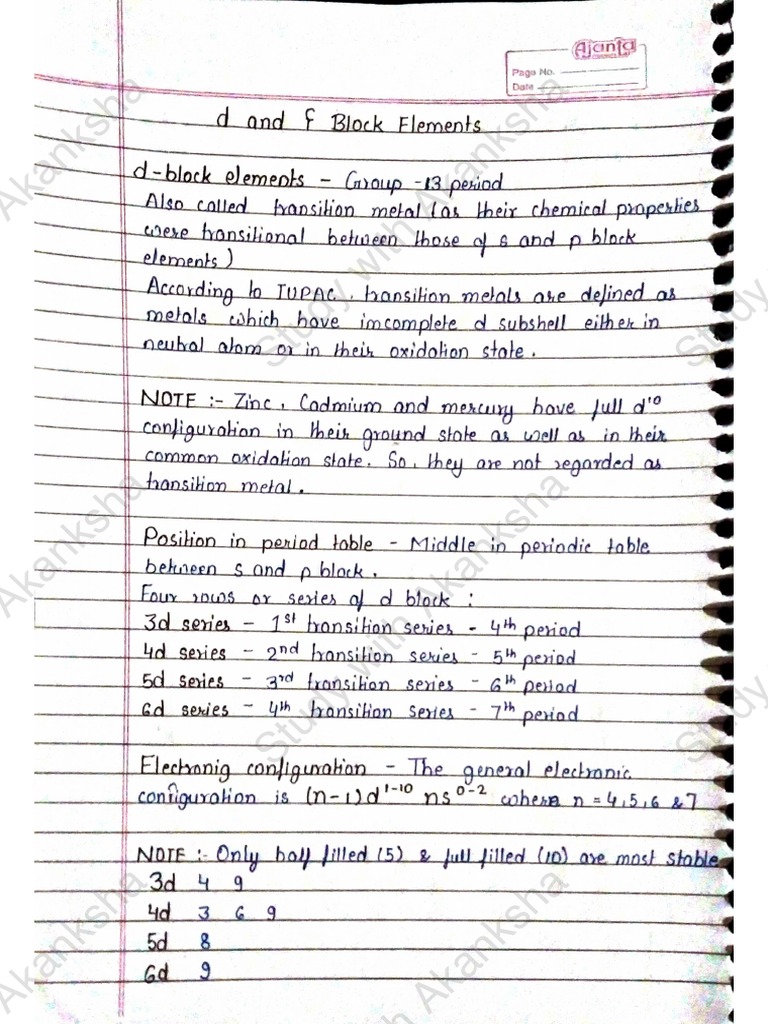 Ajanta
Page No.
Date
d and f Block Elements
d-block elements - Group -13 period
Also called transition metal (as their chemical properties
were transitional between those of s and p block
elements)
According to IUPAC, transition metals are defined as
metals which have incomplete d subshell either in
neutral atom or in their oxidation state.
NOTE :- Zinc, Cadmium and mercury have full d¹⁰
configuration in their ground state as well as in their
common oxidation state. So, they are not regarded as
transition metal.
Position in period table - Middle in periodic table
between s and p block.
Four rows or series of d block :
3d series - 1st transition series - 4th period
4d series - 2nd transition series - 5th period
5d series - 3rd transition series - 6th period
6d series - 4th transition series - 7th period
Electronig configuration - The general electronic
configuration is (n-1)d¹⁻¹⁰ ns⁰⁻² where n = 4,5,6 & 7
NOTE :- Only half filled (5) & full filled (10) are most stable
3d 4 9
4d 3 6 9
5d 8
6d 9
Study with Akanksha